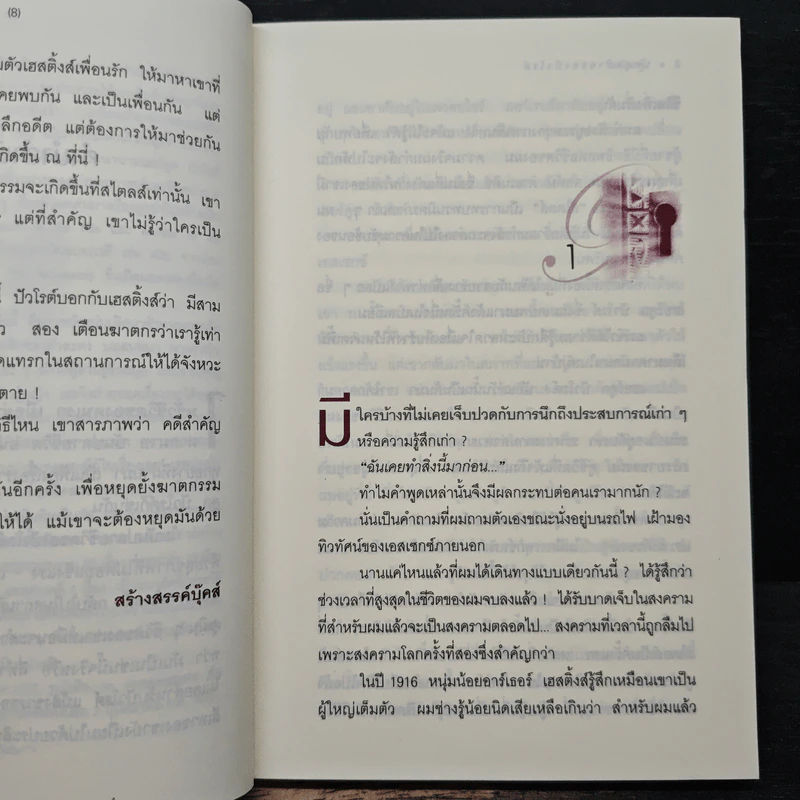 (8)
มตัวเฮสติ้งส์เพื่อนรัก ให้มาหาเขาที่
คยพบกัน และเป็นเพื่อนกัน แต่
ลึกอดีต แต่ต้องการให้มาช่วยกัน
กิดขึ้น ณ ที่นี่ !
รรมจะเกิดขึ้นที่สไตลส์เท่านั้น เขา
แต่ที่สำคัญ เขาไม่รู้ว่าใครเป็น
ปัวโรต์บอกกับเฮสติ้งส์ว่า มีสาม
สอง เตือนฆาตกรว่าเรารู้เท่า
ดแทรกในสถานการณ์ให้ได้จังหวะ
ตาย !
ธีไหน เขาสารภาพว่า คดีสำคัญ
ันอีกครั้ง เพื่อหยุดยั้งฆาตกรรม
ให้ได้ แม้เขาจะต้องหยุดมันด้วย
สร้างสรรค์บุ๊คส์
1
มีใครบ้างที่ไม่เคยเจ็บปวดกับการนึกถึงประสบการณ์เก่า ๆ
หรือความรู้สึกเก่า ?
“ฉันเคยทำสิ่งนี้มาก่อน...”
ทำไมคำพูดเหล่านั้นจึงมีผลกระทบต่อคนเรามากนัก ?
นั่นเป็นคำถามที่ผมถามตัวเองขณะนั่งอยู่บนรถไฟ เฝ้ามอง
ทิวทัศน์ของเอสเซกซ์ภายนอก
นานแค่ไหนแล้วที่ผมได้เดินทางแบบเดียวกันนี้ ? ได้รู้สึกว่า
ช่วงเวลาที่สูงสุดในชีวิตของผมจบลงแล้ว ! ได้รับบาดเจ็บในสงคราม
ที่สำหรับผมแล้วจะเป็นสงครามตลอดไป... สงครามที่เวลานี้ถูกลืมไป
เพราะสงครามโลกครั้งที่สองซึ่งสำคัญกว่า
ในปี 1916 หนุ่มน้อยอาร์เธอร์ เฮสติ้งส์รู้สึกเหมือนเขาเป็น
ผู้ใหญ่เต็มตัว ผมช่างรู้น้อยนิดเสียเหลือเกินว่า สำหรับผมแล้ว